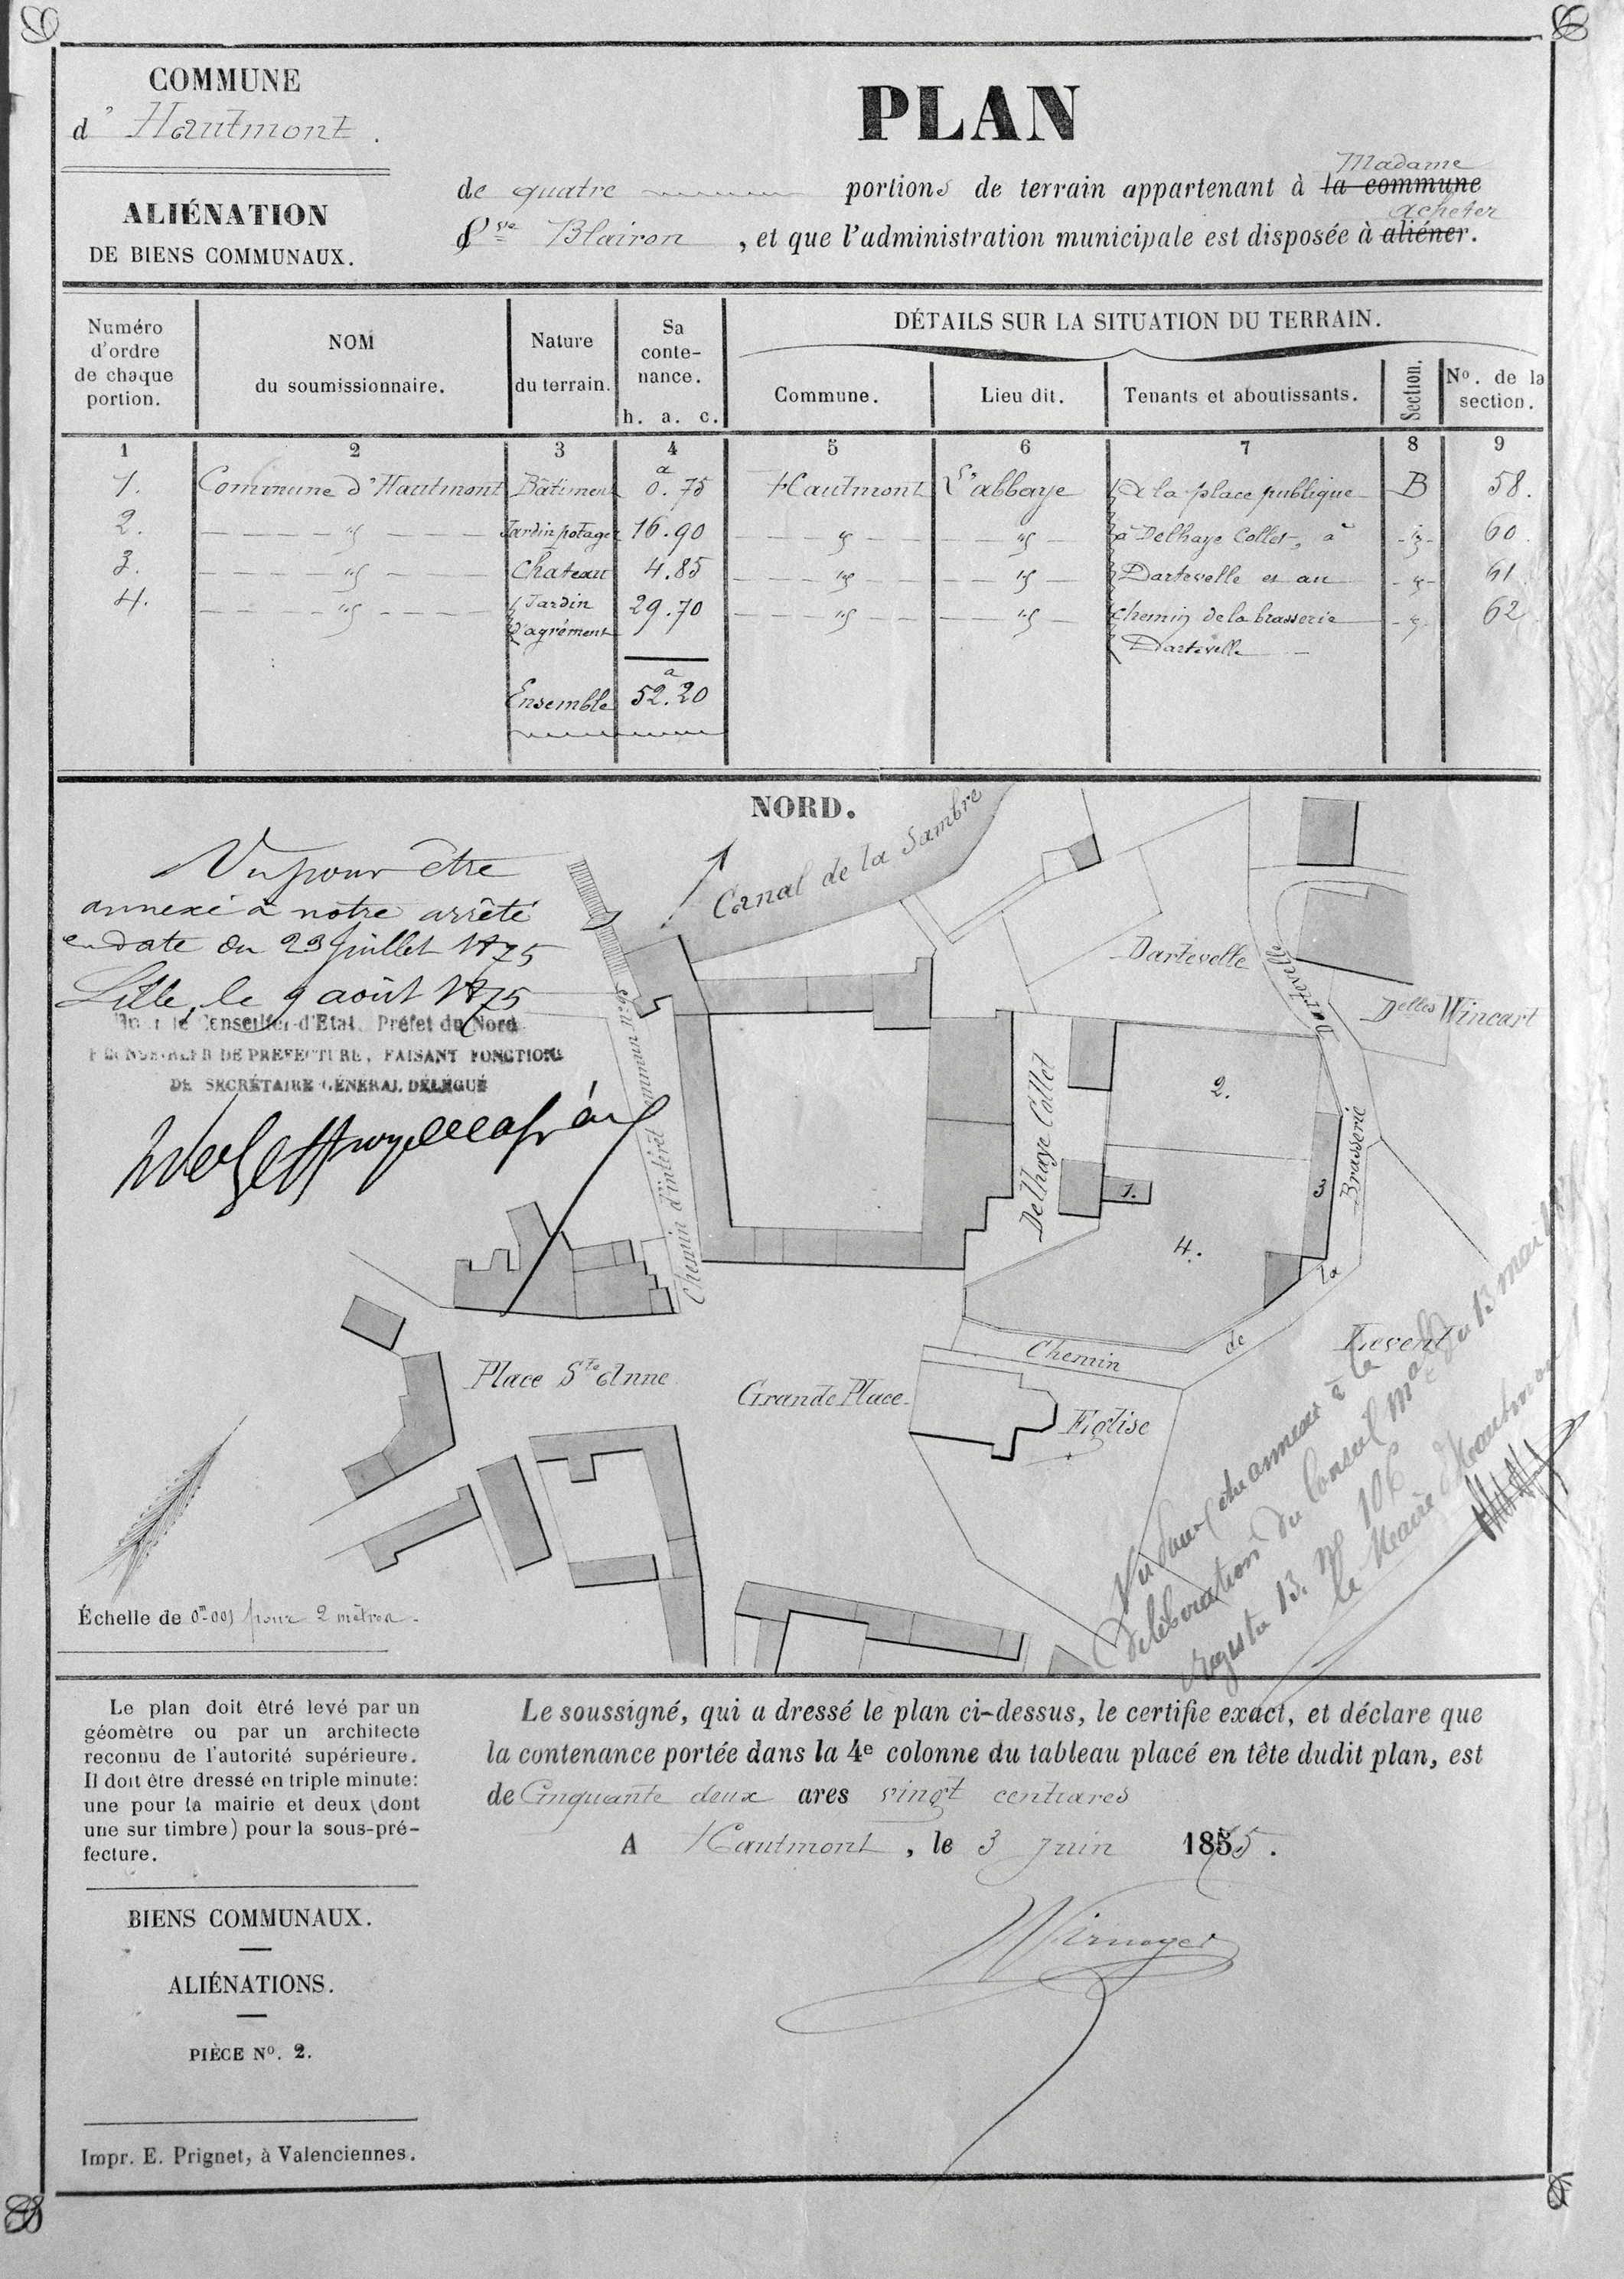 COMMUNE
d' Hautmont.
ALIÉNATION
DE BIENS COMMUNAUX.
PLAN
Madame
de quatre portions de terrain appartenant à la commune
acheter
Vve Blairon, et que l'administration municipale est disposée à aliéner.
Numéro d'ordre de chaque portion.
NOM du soumissionnaire.
Nature du terrain.
Sa conte-nance.
h. a. c.
DÉTAILS SUR LA SITUATION DU TERRAIN.
Commune.
Lieu dit.
Tenants et aboutissants.
Section.
No. de la section.
1 2 3 4 5 6 7 8 9
a
1. Commune d'Hautmont Bâtiment 0.75 Hautmont L'abbaye à la place publique B 58.
2. " Jardin potager 16.90 " " à Delhaye Collet, à " 60.
3. " Chateau 4.85 " " Dartevelle et au " 61.
4. " Jardin 29.70 " " chemin de la brasserie " 62
d'agrément Dartevelle
a
Ensemble 52.20
NORD.
Vu pour être
annexé à notre arrêté
en date du 23 juillet 1875
Lille, le 9 août 1875
Pour le Conseiller-d'Etat Préfet du Nord
DE PREFECTURE, FAISANT FONCTIONS
DE SECRÉTAIRE GÉNÉRAL DÉLÉGUÉ
Canal de la Sambre
Dartevelle
Dartevelle
Delles Wincart
Chemin d'intérêt commun
Delhaye Collet
2.
1.
3
4.
Brasserie
la
de
Chemin
Place Ste Anne
Grande Place.
Eglise
Vu pour être annexé à la
délibération du Conseil Mal du 13 mai
13. No 106
le Maire d'Hautmont
Échelle de 0m001 pour 2 mètres.
Le plan doit étré levé par un
géomètre ou par un architecte
reconnu de l'autorité supérieure.
Il doit être dressé en triple minute:
une pour la mairie et deux (dont
une sur timbre) pour la sous-pré-
fecture.
BIENS COMMUNAUX.
ALIÉNATIONS.
PIÈCE No. 2.
Impr. E. Prignet, à Valenciennes.
Le soussigné, qui a dressé le plan ci-dessus, le certifie exact, et déclare que
la contenance portée dans la 4e colonne du tableau placé en tête dudit plan, est
de Cinquante deux ares vingt centiares
A Hautmont, le 3 Juin 1875.